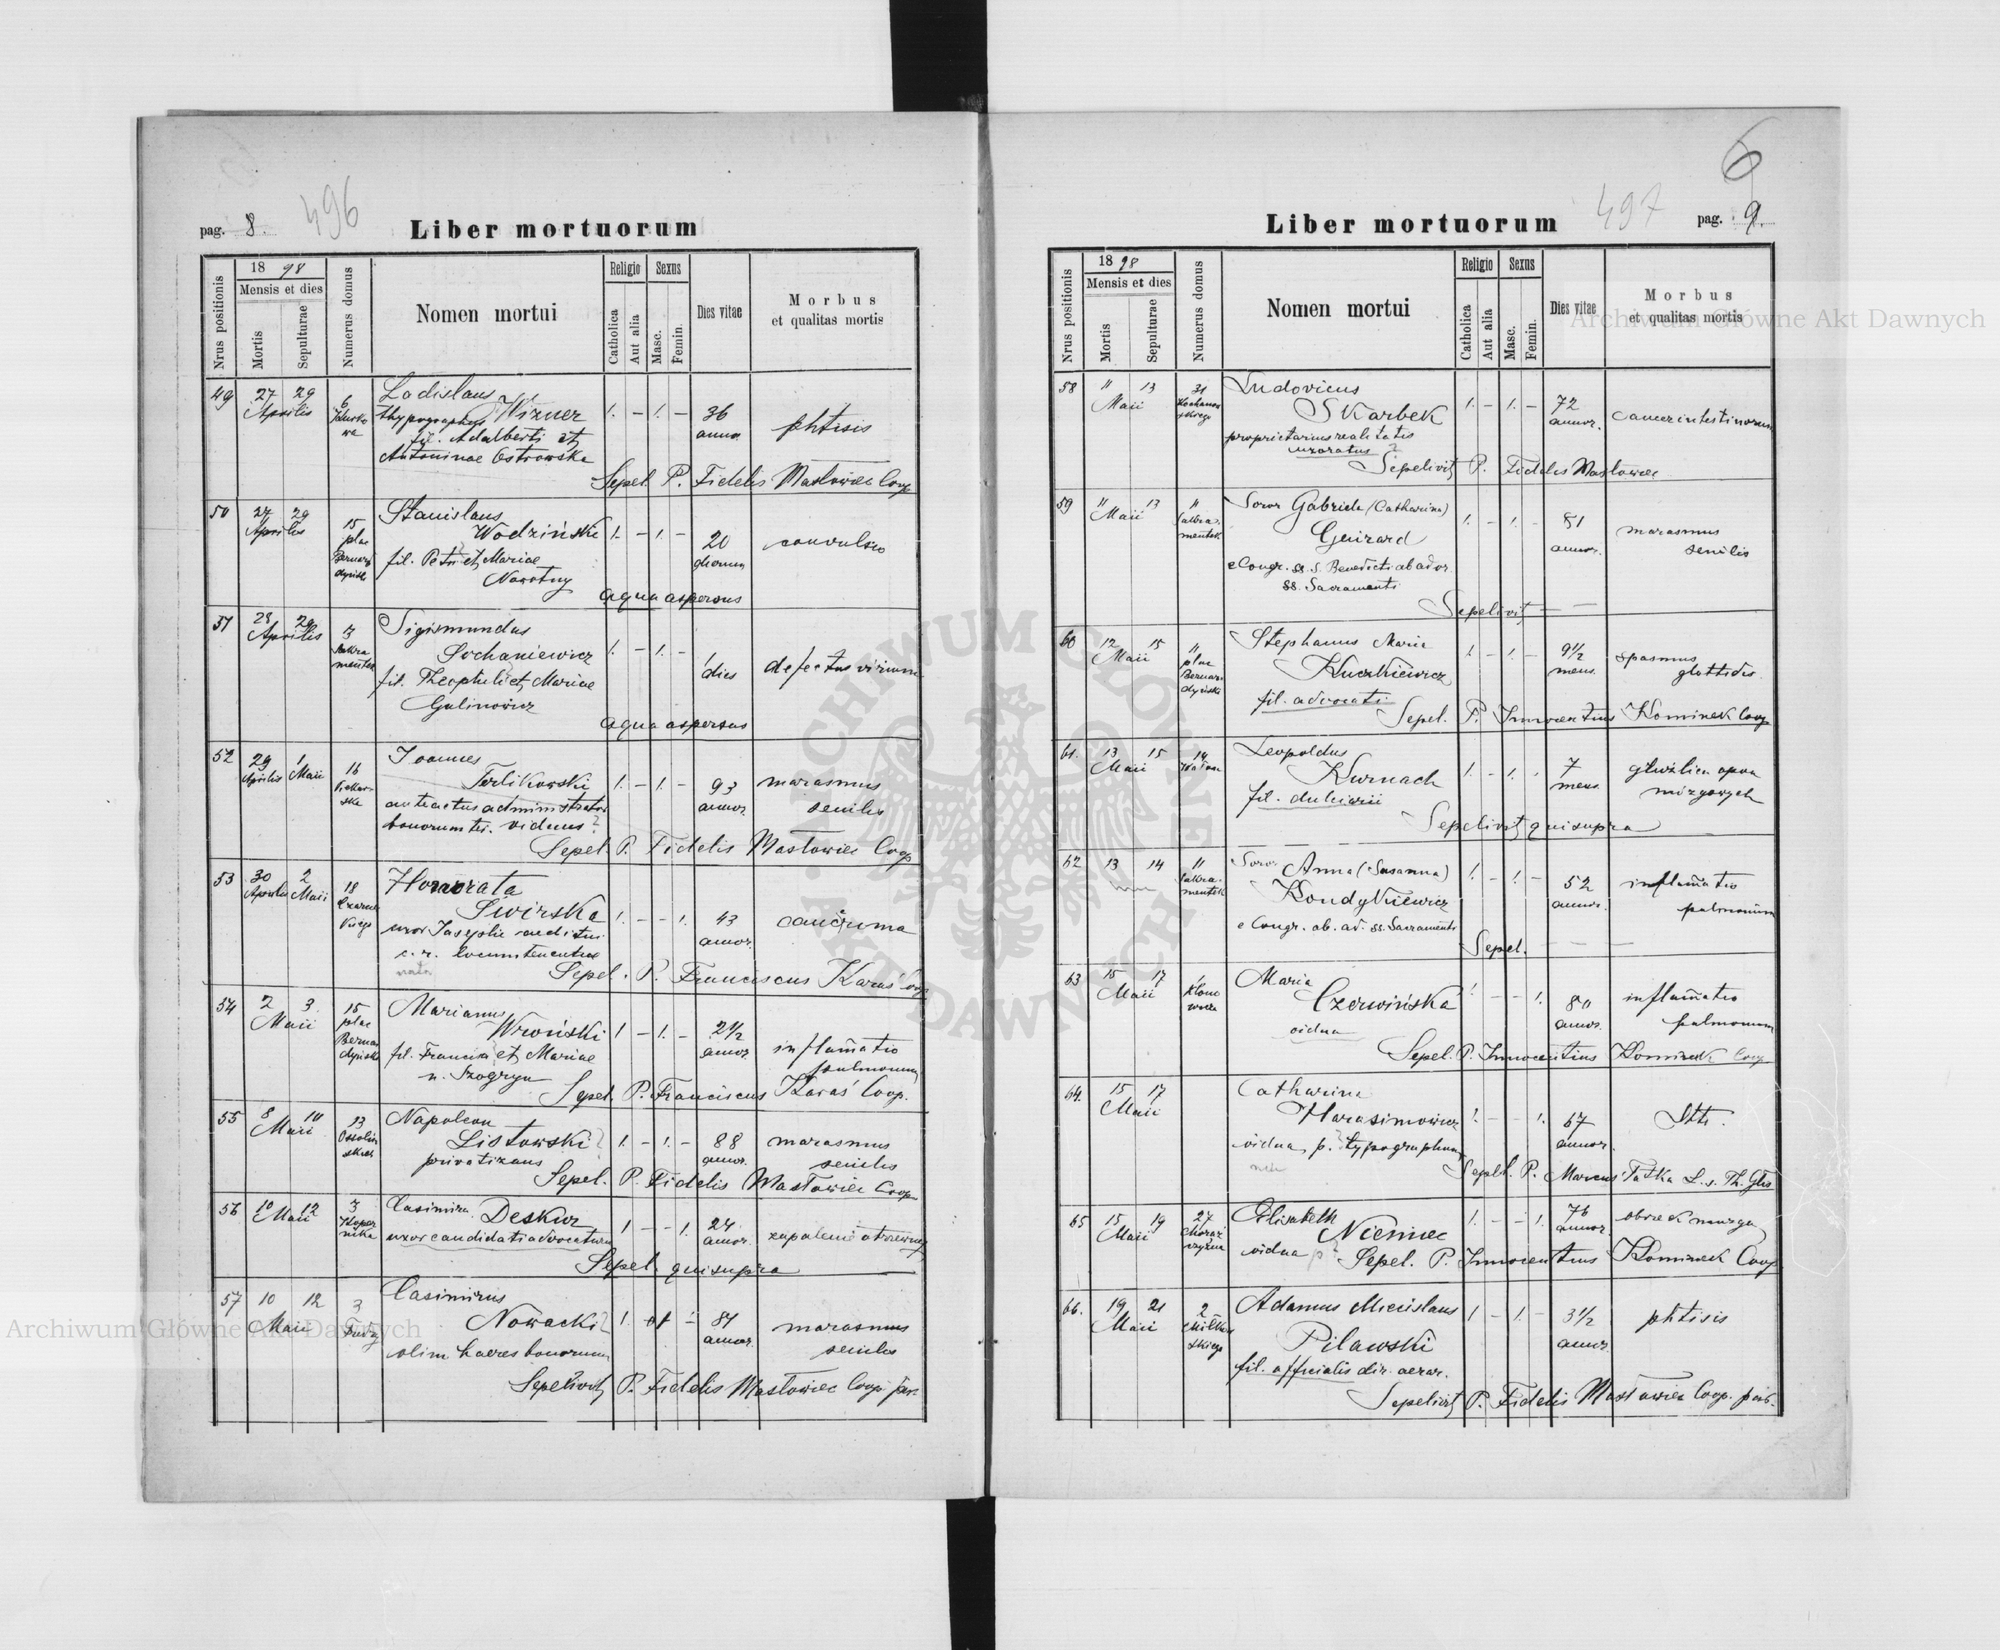 pag. 8.
496
Liber mortuorum
Nrus positionis
18 98
Mensis et dies
Mortis
Sepulturae
Numerus domus
Nomen mortui
Religio
Catholica
Aut alia
Sexus
Masc.
Femin.
Dies vitae
Morbus
et qualitas mortis
49 27 29 6 Ladislaus
Aprilis Wizner 1. – 1. – 36
fil. Adalberti et annor. phtisis
Antoninae Ostrowska
Sepel. P. Fidelis Masłowiec Coop
50 27 29 15 Stanislaus
Aprilis plac Wodziński 1. – 1. – 20 convulsio
fil. Petri et Mariae
Nowotny
aqua aspersus
51 28 29 3 Sigismundus
Aprilis Sakramentek Sochaniewicz 1. – 1. – 1 defectus virium
fil. Theophili et Mariae dies
Galinowicz
aqua aspersus
52 29 1 16 Joannes
Aprilis Maii Terlikowski 1. – 1. – 93 marasmus
annor. senilis
viduus?
Sepel. P. Fidelis Masłowiec Coop
53 30 2 18 Honorata
Aprilis Maii Czarneckiego Świrska 1. – – 1. 43 cancroma
uxor Josephi annor.
c. r. locumtenentiae
Sepel. P. Franciscus Karaś Coop
54 2 3 15 Marianus
Maii plac Wroński 1 – 1. – 2 1/2
fil. Francisci et Mariae annor. inflam̄atio
pulmonum
Sepel. P. Franciscus Karaś Coop.
55 8 10 13 Napoleon
Maii Listowski? 1. – 1. – 88 marasmus
privatizans annor. senilis
Sepel. P. Fidelis Masłowiec Coop
56 10 12 3 Casimira Deskur
Maii Kopernika uxor candidati advocaturae 1 – – 1. 24 zapalenie otrzewnej
annor.
Sepel. qui supra
57 10 12 3 Casimirus
Maii Nowacki? 84 marasmus
olim haeres bonorum annor. senilis
Sepelivit P. Fidelis Masłowiec Coop. par.
6
497
pag. 9.
Liber mortuorum
Nrus positionis
18 98
Mensis et dies
Mortis
Sepulturae
Numerus domus
Nomen mortui
Religio
Catholica
Aut alia
Sexus
Masc.
Femin.
Dies vitae
Morbus
et qualitas mortis
58 11 13 31 Ludovicus
Maii Kochanowskiego Skarbek 1. – 1. – 72 cancer intestinorum
proprietarius realitatis annor.
uxoratus
Sepelivit P. Fidelis Masłowiec
59 11 13 11 Soror Gabriela (Catharina)
Maii Sakramentek Guirard 1. – 1. – 81 marasmus
e Congr. ss. S. Benedicti ab ador. annor. senilis
SS. Sacramenti
Sepelivit — —
60 12 15 11 Stephanus Maria
Maii plac Bernardyński Kuczkiewicz 1. – 1. – 9 1/2 spasmus
fil. advocati mens. glottidis
Sepel. P. Innocentius Kominek Coop
61. 13 15 14 Leopoldus
Maii Kurnach 1. – 1. 7 gruźlica opon
mens. mózgowych
Sepelivit qui supra
62 13 14 11 Soror Anna (Susanna)
Sakramentek Kondykiewicz 1. – 1. – 52 inflam̄atio
e Congr. ab. ad. SS. Sacramenti annor. pulmonum
Sepel. — — —
63 15 17 1 Maria
Maii Czerwińska 1. – – 1. 80 inflam̄atio
vidua annor. pulmonum
Sepel. P. Innocentius Kominek Coop
64. 15 17 Catharina
Maii Harasimowicz 1. – – 1. 67
vidua p. typographum annor.
Sepel. P. Marcus Tatka
65 15 19 27 Elisabeth
Maii Niemiec 1. – – 1. 76 obrzęk mózgu
vidua annor.
Sepel. P. Innocentius Kominek Coop
66. 19 21 2 Adamus Miecislaus
Maii Pilawski 1 – 1. – 3 1/2 phtisis
fil. officialis dir. aerar. annor.
Sepelivit P. Fidelis Masłowiec Coop. par.
Archiwum Główne Akt Dawnych
Archiwum Główne Akt Dawnych
ARCHIWUM GŁÓWNE AKT DAWNYCH